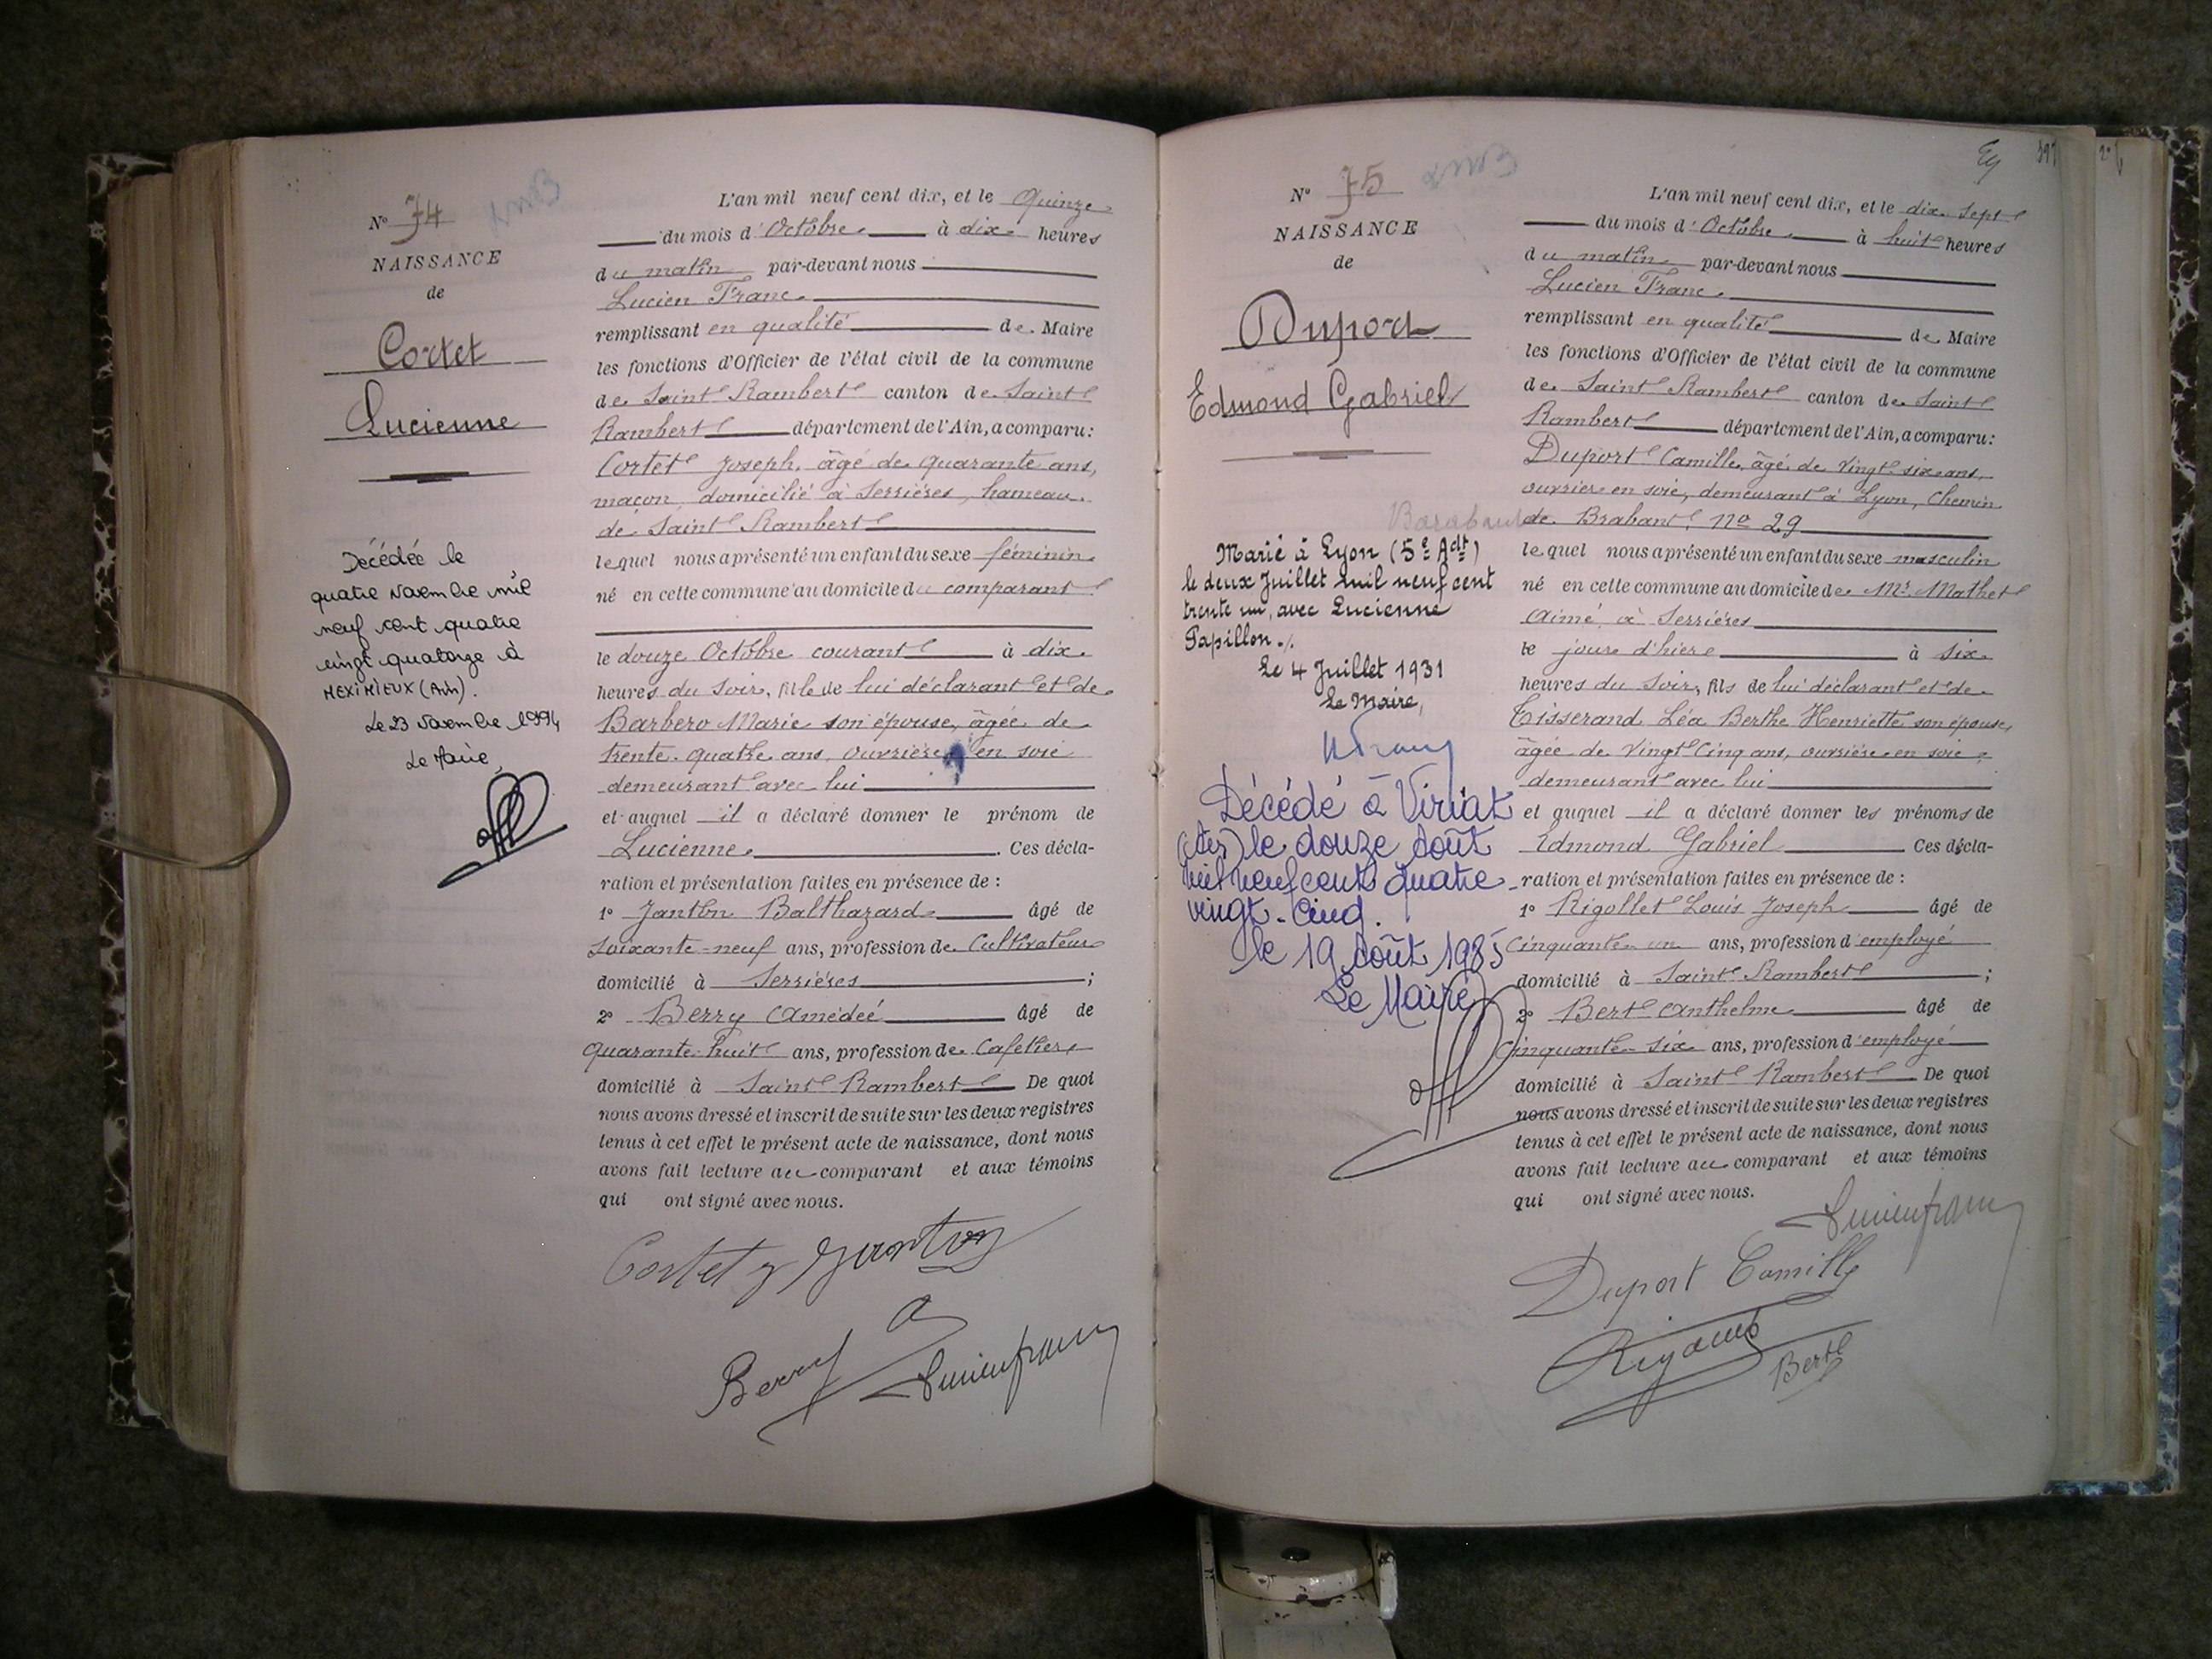 N° 74
NAISSANCE
de
Cortet
Lucienne
Décédée le
quatre Novembre mil
neuf cent quatre
vingt quatorze à
MEXIMIEUX (Ain).
Le 23 Novembre 1994
Le Maire,
L'an mil neuf cent dix, et le Quinze
du mois d'Octobre à dix heures
du matin par-devant nous
Lucien Franc
remplissant en qualité de Maire
les fonctions d'Officier de l'état civil de la commune
de Saint Rambert canton de Saint
Rambert département de l'Ain, a comparu:
Cortet Joseph, âgé de quarante ans,
maçon, domicilié à Serrières, hameau
de Saint Rambert
lequel nous a présenté un enfant du sexe féminin
né en cette commune au domicile du comparant
le douze Octobre courant à dix
heures du soir, fille de lui déclarant et de
Barbero Marie son épouse, âgée de
trente-quatre ans, ouvrière en soie
demeurant avec lui
et auquel il a déclaré donner le prénom de
Lucienne. Ces décla-
ration et présentation faites en présence de :
1° Janton Balthazard âgé de
soixante-neuf ans, profession de Cultivateur
domicilié à Serrières ;
2° Berry Amédée âgé de
quarante-huit ans, profession de Cafetier
domicilié à Saint Rambert De quoi
nous avons dressé et inscrit de suite sur les deux registres
tenus à cet effet le présent acte de naissance, dont nous
avons fait lecture au comparant et aux témoins
qui ont signé avec nous.
Cortet J Janton
Berry A Lucien franc
N° 75
NAISSANCE
de
Duport
Edmond Gabriel
Marié à Lyon (5e Adt)
le deux Juillet mil neuf cent
trente un, avec Lucienne
Papillon./.
Le 4 Juillet 1931
Le Maire,
Décédé à Viriat
(Ain) le douze Août
mil neuf cent quatre
vingt-cinq.
le 19 Août 1985
Le Maire
L'an mil neuf cent dix, et le dix-sept
du mois d'Octobre à huit heures
du matin par-devant nous
Lucien Franc
remplissant en qualité de Maire
les fonctions d'Officier de l'état civil de la commune
de Saint Rambert canton de Saint
Rambert département de l'Ain, a comparu:
Duport Camille, âgé de vingt-six ans,
ouvrier en soie, demeurant à Lyon, Chemin
de Brabant, No 29
lequel nous a présenté un enfant du sexe masculin
né en cette commune au domicile de Mr Mathet
Aimé, à Serrières
le jour d'hier à six
heures du soir, fils de lui déclarant et de
Tisserand Léa Berthe Henriette son épouse,
âgée de vingt-cinq ans, ouvrière en soie,
demeurant avec lui
et auquel il a déclaré donner les prénoms de
Edmond Gabriel Ces décla-
ration et présentation faites en présence de :
1° Rigollet Louis Joseph âgé de
cinquante-un ans, profession d'employé
domicilié à Saint Rambert ;
2° Bert Anthelme âgé de
cinquante-six ans, profession d'employé
domicilié à Saint Rambert De quoi
nous avons dressé et inscrit de suite sur les deux registres
tenus à cet effet le présent acte de naissance, dont nous
avons fait lecture au comparant et aux témoins
qui ont signé avec nous.
Lucien franc
Duport Camille
Bert